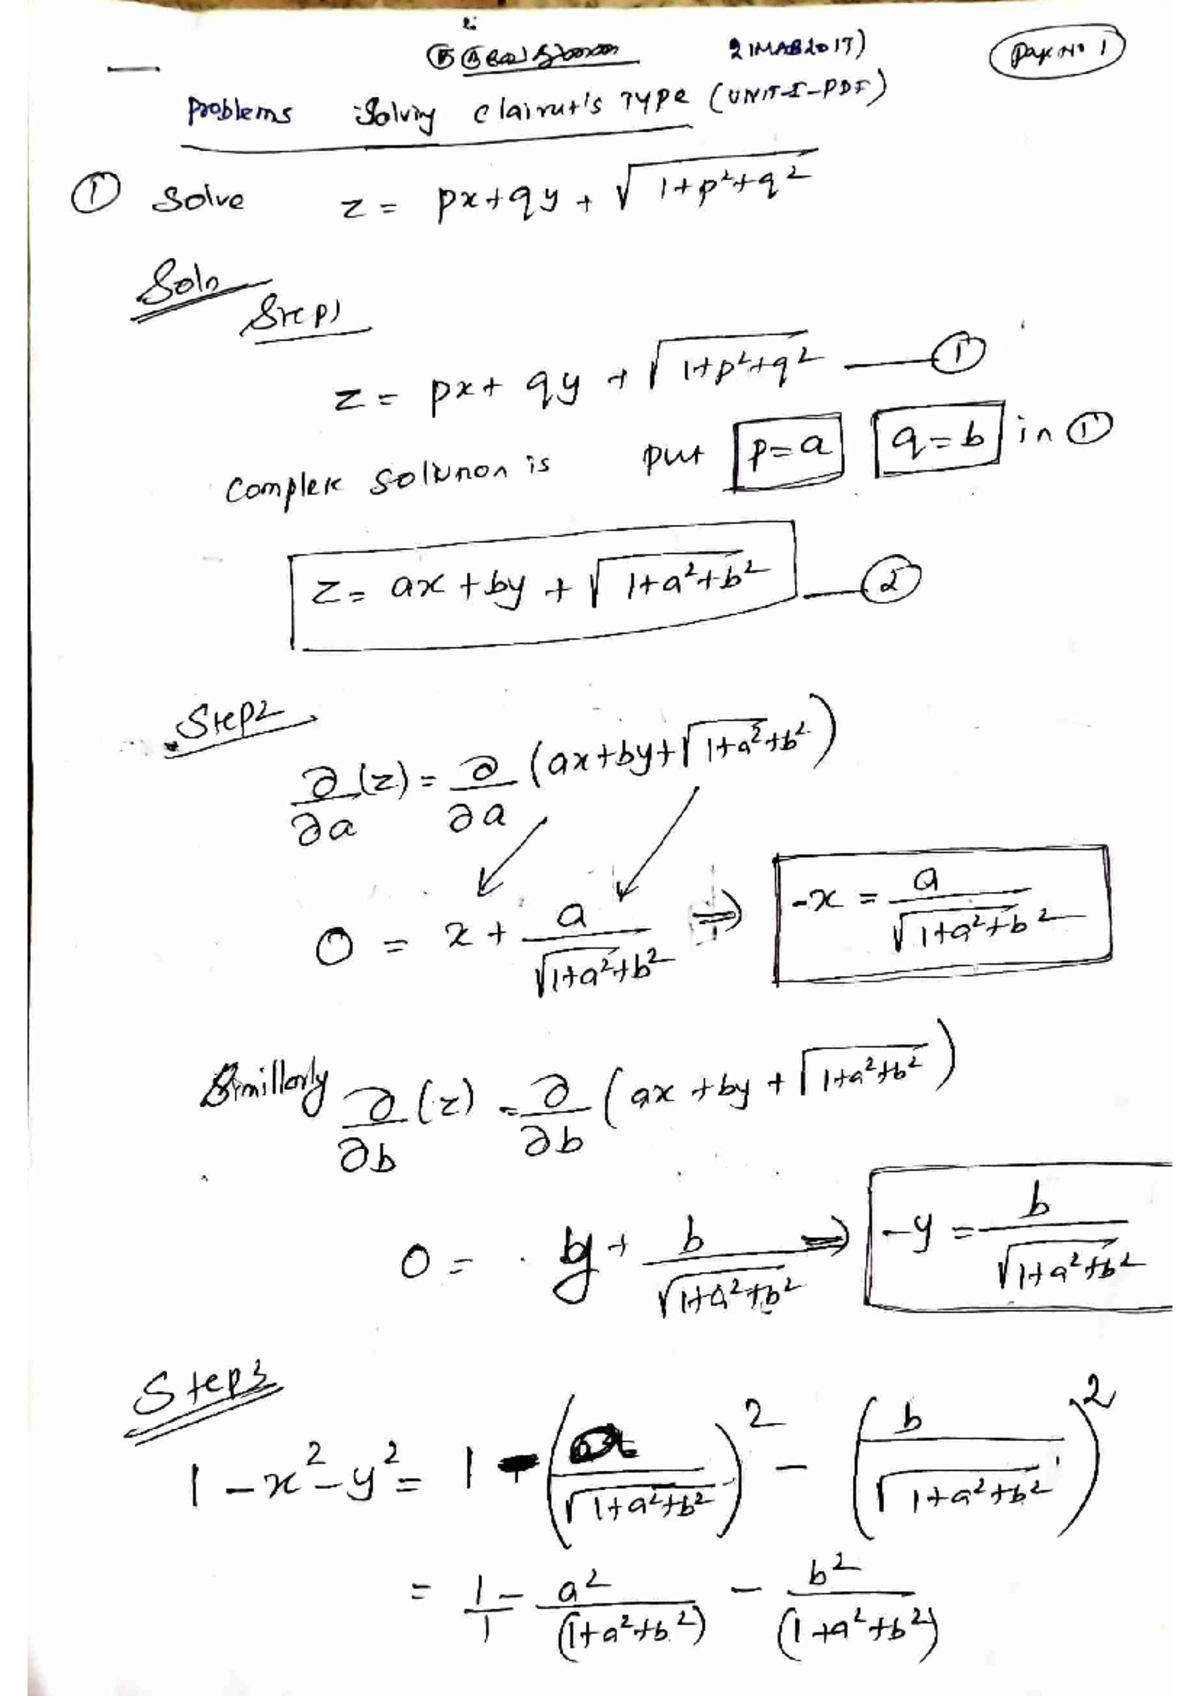 21MAB2017)
Page No 1
Problems Solving Clairut's TYPE (UNIT-I-PDE)
① Solve z = px+qy+√(1+p²+q²)
Soln
Step1
z = px+qy+√(1+p²+q²) — ①
Complete solution is put p=a q=b in ①
z = ax+by+√(1+a²+b²) — ②
Step2
∂/∂a (z) = ∂/∂a (ax+by+√(1+a²+b²))
0 = x + a/√(1+a²+b²) ⇒ -x = a/√(1+a²+b²)
Simillarly ∂/∂b (z) = ∂/∂b (ax+by+√(1+a²+b²))
0 = y + b/√(1+a²+b²) ⇒ -y = b/√(1+a²+b²)
Step3
1-x²-y² = 1 - (a/√(1+a²+b²))² - (b/√(1+a²+b²))²
= 1/1 - a²/(1+a²+b²) - b²/(1+a²+b²)